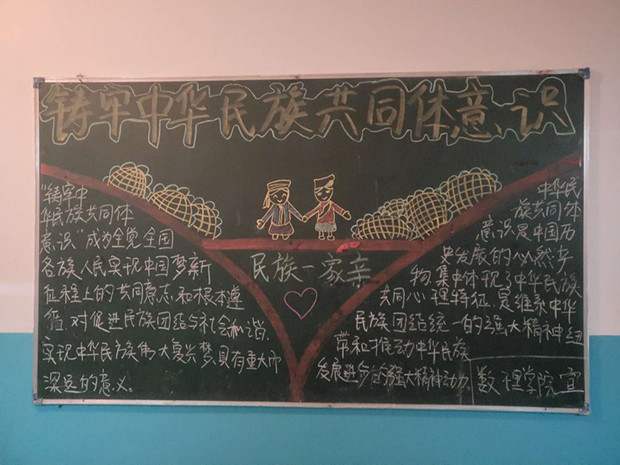 铸牢中华民族共同体意识
"铸牢中
华民族共同体
意识"成为全党全国
各族人民实现中国梦新
征程上的共同意志和根本遵
循,对促进民族团结与社会和谐,
实现中华民族伟大复兴梦具有重大而
深远的意义。
民族一家亲
中华民
族共同体
意识是中国历
史发展的必然产
物,集中体现了中华民族
共同心理特征,是维系中华
民族团结统一的强大精神纽
带和推动中华民族
发展进步的强大精神动力。
数理学院宣